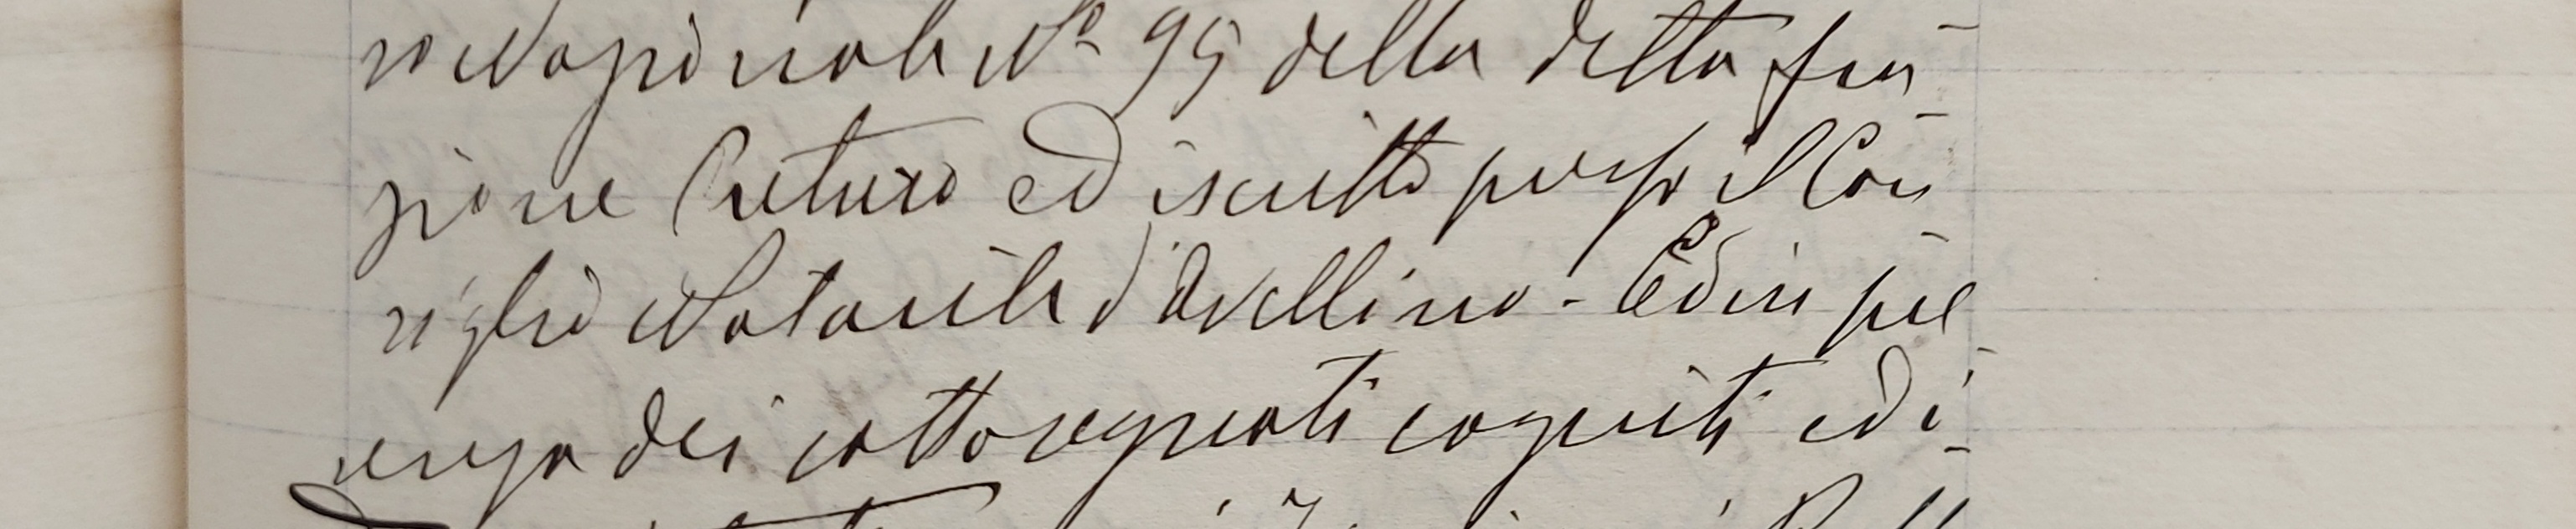 ro Nazionale No 95 della detta fra-
zione Preturo ed iscritto presso il Con-
siglio Notarile d'Avellino - Ed in pre-
senza dei sottosegnati cogniti ed i-